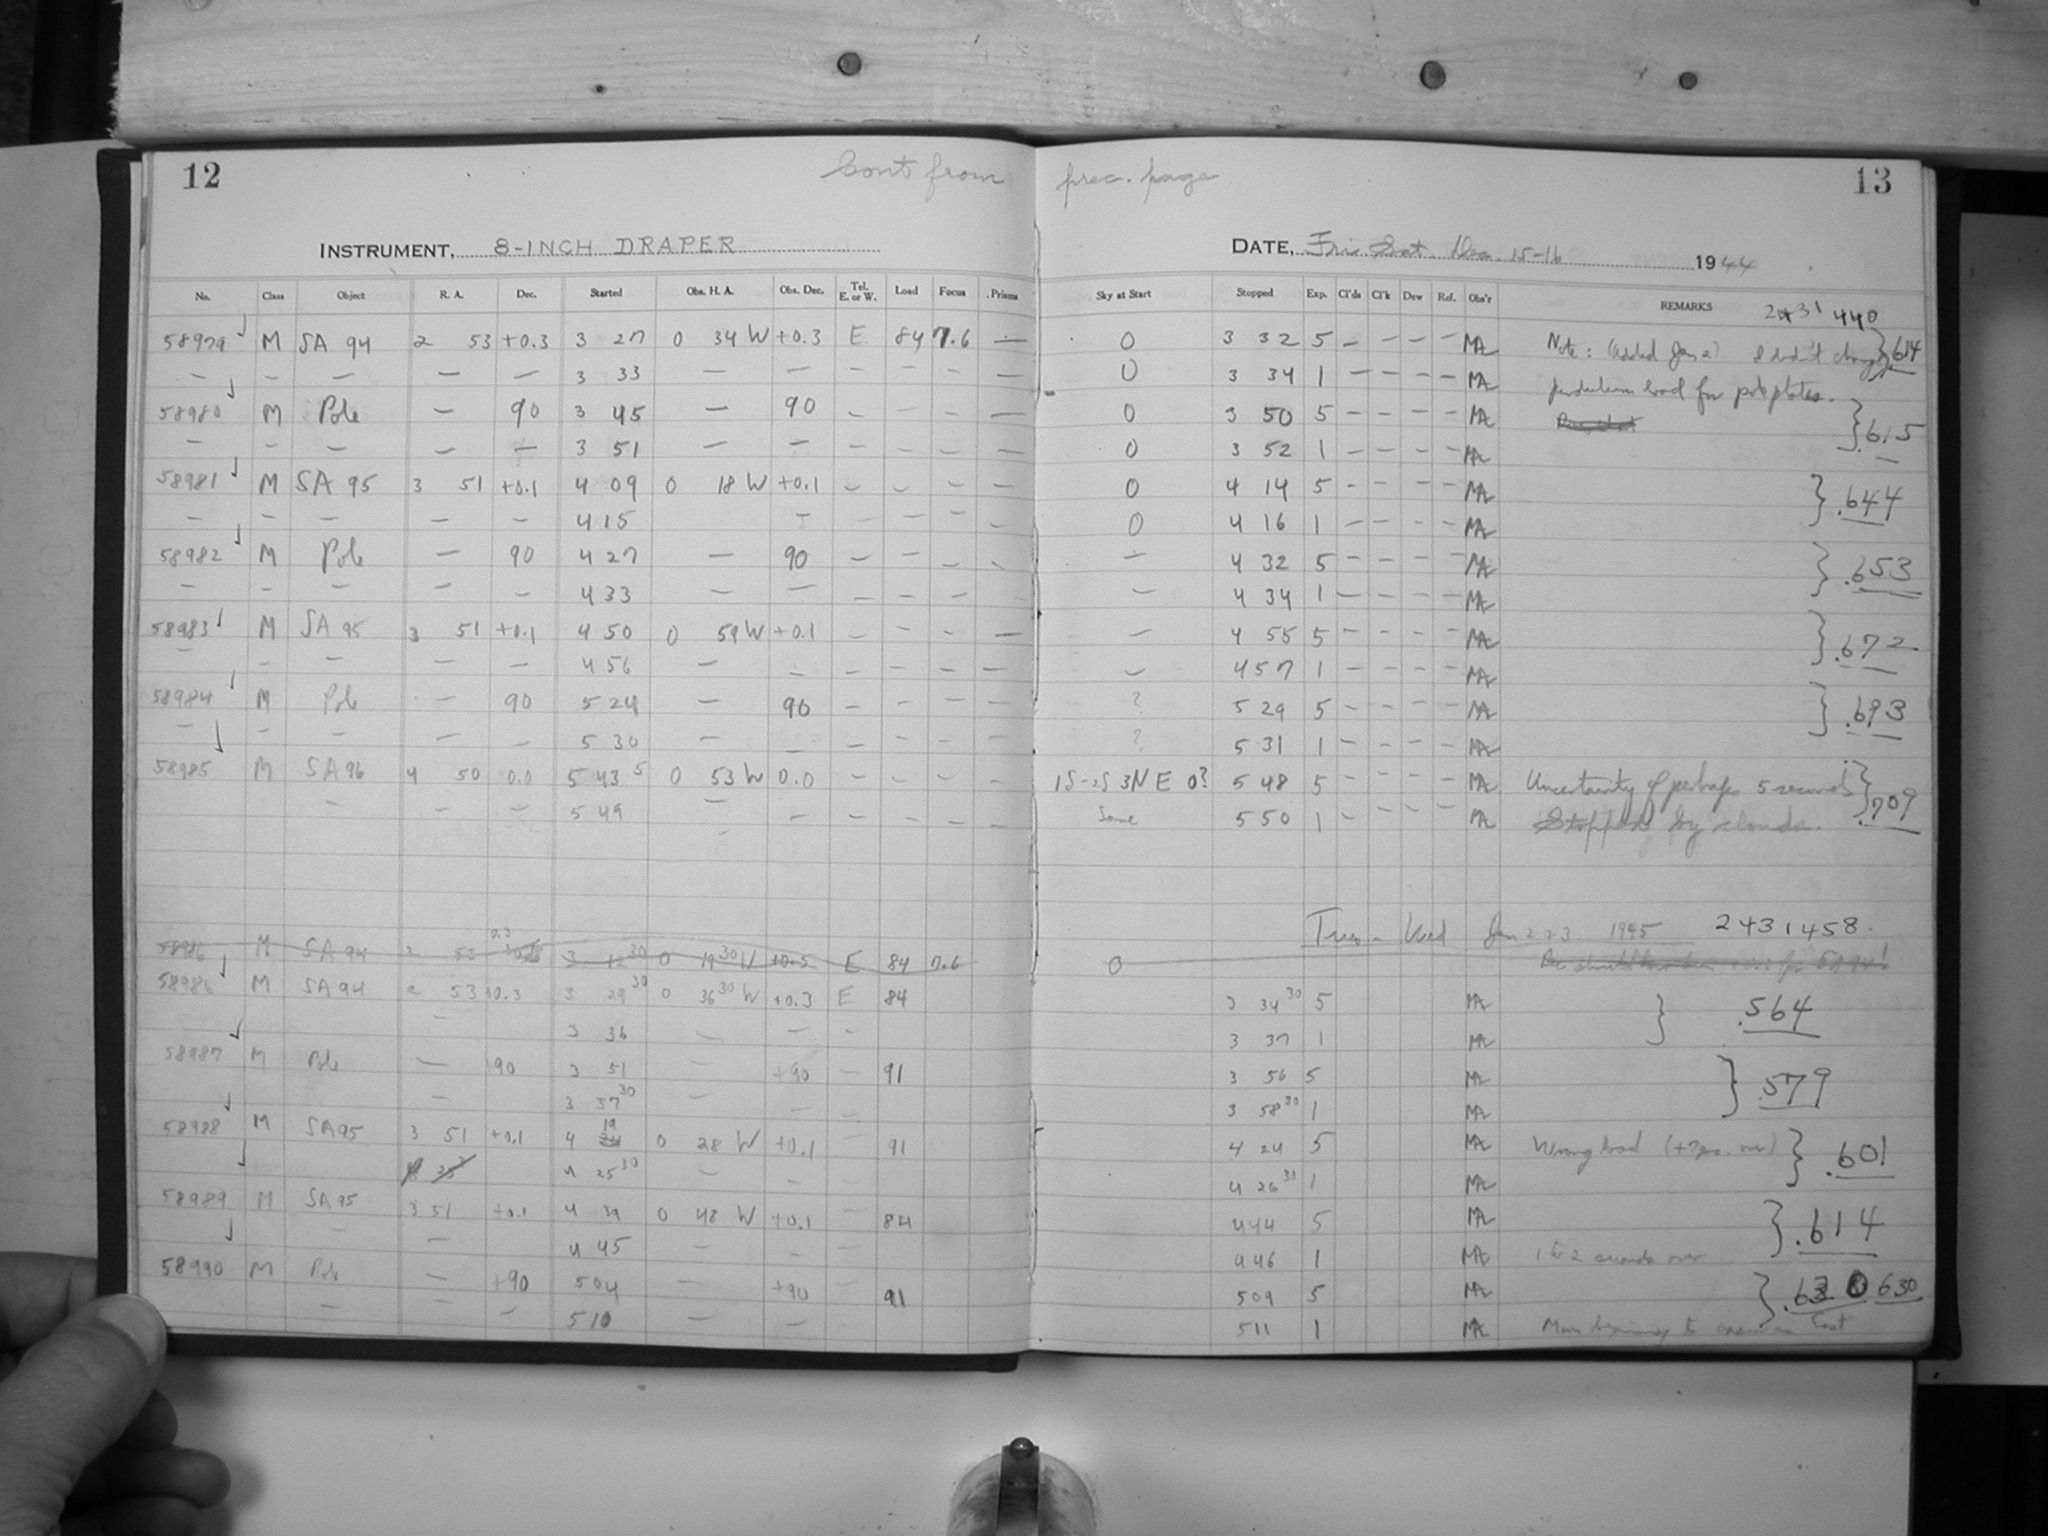 12 Cont from prec. page 13
INSTRUMENT, 8-INCH DRAPER DATE, Fri Sat. Dec. 15-16 1944
No. Class Object R. A. Dec. Started Obs. H. A. Obs. Dec. Tel. E. or W. Load Focus Prisms Sky at Start Stopped Exp. Cl'ds Cl'k Dew Ref. Obs'r REMARKS 2431 440
58979 M SA 94 2 53 +0.3 3 27 0 34 W +0.3 E 84 7.6 — 0 3 32 5 – – – – MA Note: (added Jan 2) I didn't change } .614
— – — — — 3 33 — – – – – — 0 3 34 1 – – – – MA pendulum load for pole plates.
58980 M Pole — 90 3 45 — 90 – – – — 0 3 50 5 – – – – MA } .615
— – — — — 3 51 — – – – – — 0 3 52 1 – – – – MA
58981 M SA 95 3 51 +0.1 4 09 0 18 W +0.1 – – – – 0 4 14 5 – – – – MA } .644
— – — — – 4 15 – – – – – 0 4 16 1 – – – – MA
58982 M Pole — 90 4 27 — 90 – – – – — 4 32 5 – – – – MA } .653
– – – – – 4 33 — — – – – – — 4 34 1 – – – – MA
58983 M SA 95 3 51 +0.1 4 50 0 59 W +0.1 – – – — — 4 55 5 – – – – MA } .672
– – — — – 4 56 — – – – – — — 4 57 1 – – – – MA
58984 M Pole – 90 5 24 — 90 – – – – ? 5 29 5 – – – – MA } .693
– – – — – 5 30 – – – – – – ? 5 31 1 – – – – MA
58985 M SA 96 4 50 0.0 5 43 5 0 53 W 0.0 – – – – 1S-2S 3N E 0? 5 48 5 – – – – MA Uncertainty of perhaps 5 seconds } .709
– – – 5 49 — – – – – – Same 5 50 1 – – – – MA Stopped by clouds.
Tues - Wed Jan 2 & 3 1945 2431458.
58986 M SA 94 2 53 0.3 3 12 30 0 19 30 W +0.5 E 84 7.6 0
58986 M SA 94 2 53 +0.3 3 29 30 0 36 30 W +0.3 E 84 3 34 30 5 MA } .564
– 3 36 – – – 3 37 1 MA
58987 M Pole — 90 3 51 — +90 – 91 3 56 5 MA } .579
– 3 57 30 – – – 3 58 30 1 MA
58988 M SA95 3 51 +0.1 4 19 0 28 W +0.1 – 91 4 24 5 MA Wrong load } .601
4 25 30 – – – 4 26 30 1 MA
58989 M SA 95 3 51 +0.1 4 39 0 48 W +0.1 – 84 4 44 5 MA } .614
– – 4 45 – – – 4 46 1 MA 1 to 2 seconds over
58990 M Pole — +90 5 04 — +90 – 91 5 09 5 MA } 630
– – – 5 10 — – 5 11 1 MA Moon beginning to in East